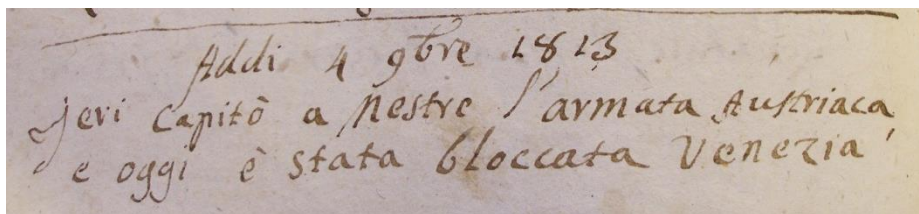 Addi 4 9bre 1813
Jeri Capitò a Mestre l'armata Austriaca
e oggi è stata bloccata Venezia